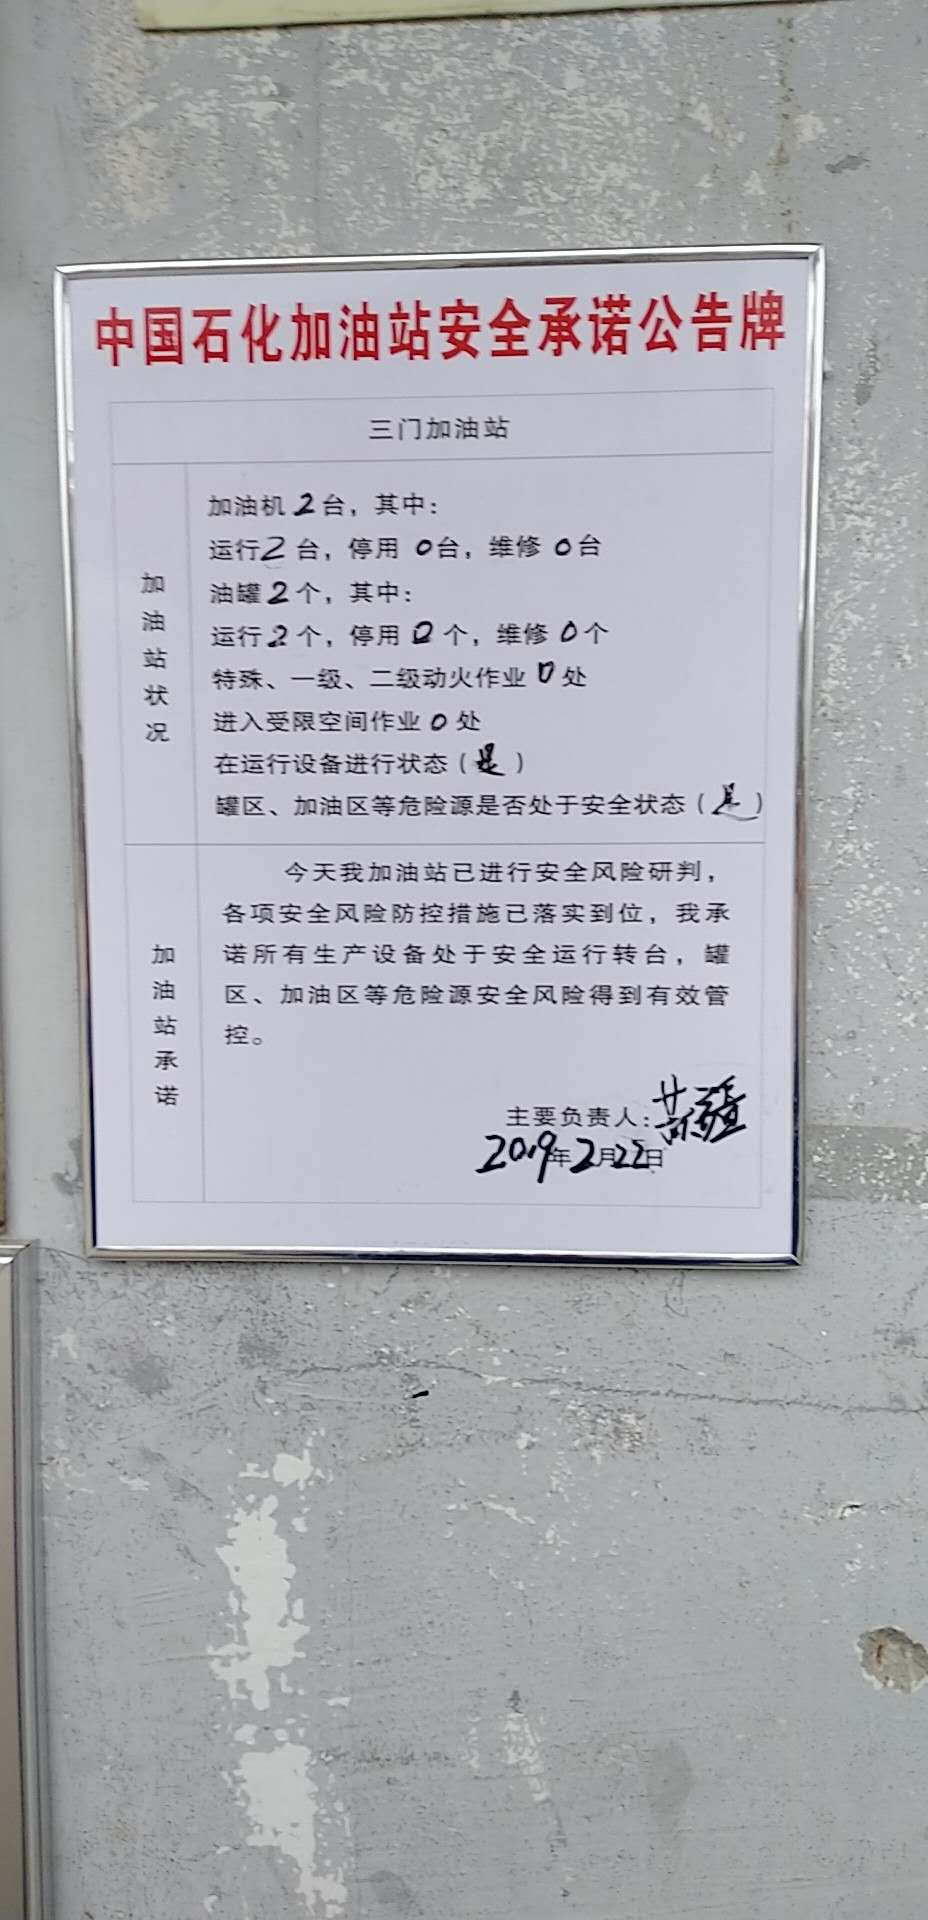 中国石化加油站安全承诺公告牌
三门加油站
加油站状况
加油机2台，其中：
运行2台，停用0台，维修0台
油罐2个，其中：
运行2个，停用0个，维修0个
特殊、一级、二级动火作业0处
进入受限空间作业0处
在运行设备进行状态（是）
罐区、加油区等危险源是否处于安全状态（是）
加油站承诺
今天我加油站已进行安全风险研判，
各项安全风险防控措施已落实到位，我承
诺所有生产设备处于安全运行转台，罐
区、加油区等危险源安全风险得到有效管
控。
主要负责人：
2019年2月22日